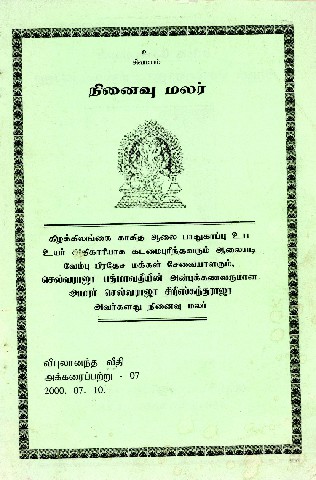 உ
சிவமயம்
நினைவு மலர்
கிழக்கிலங்கை காகித ஆலை பாதுகாப்பு உப
உயர் அதிகாரியாக கடமைபுரிந்தவரும் ஆலையடி
வேம்பு பிரதேச மக்கள் சேவையாளரும்,
செல்வராஜா பத்மாவதியின் அன்புக்கணவருமான
அமரர் செல்வராஜா சிறீஸ்கந்தராஜா
அவர்களது நினைவு மலர்
விபுலானந்த வீதி
அக்கரைப்பற்று - 07
2000. 07. 10.